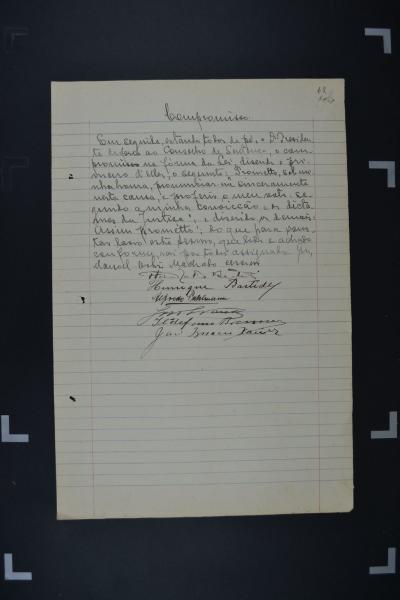 Compromisso
Em seguida, estando todos de pé, o Dr Presiden-
te deferiu ao Conselho de Sentença, o com-
promisso na fórma da Lei, disendo o pri-
meiro d'elles, o seguinte: "Prometto, sob mi-
nha honra, pronunciar-me sinceramente
nesta causa, e proferir o meu voto, se-
gundo a minha convicção e os dicta-
mes da Justiça", e disendo os demais
Assim prometto"; do que para cons-
tar lavro este termo, que lido e achado
conforme, vai por todos assignado. Eu,
Manoel José Machado escrivão
Henrique Bastide
Alfredo
José
Xavier